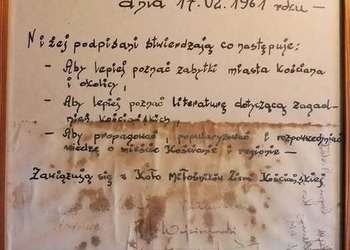 dnia 17.02.1961 roku —
Niżej podpisani stwierdzają co następuje:
— Aby lepiej poznać zabytki miasta Kościana
i okolicy,
— Aby lepiej poznać literaturę dotyczącą zagad-
nień kościańskich,
— Aby propagować, popularyzować i rozpowszechniać
wiedzę o mieście Kościanie i regionie —
Zawiązują się w Koło Miłośników Ziemi Kościańskiej